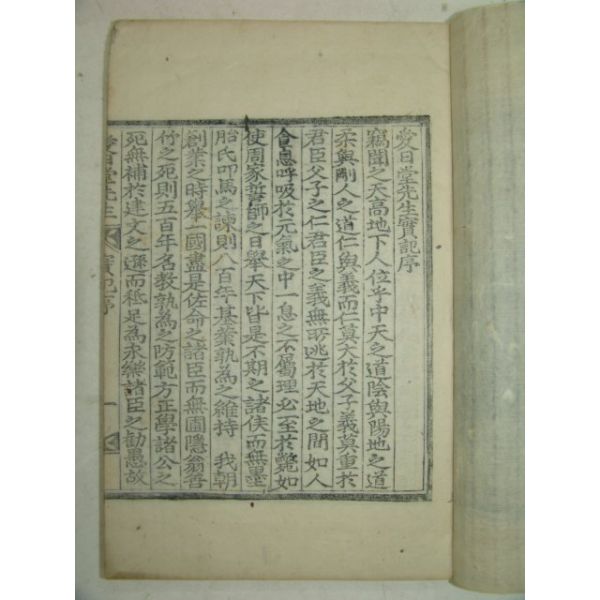 愛日堂先生實記序
竊聞之天高地下人位乎中天之道陰與陽地之道
柔與剛人之道仁與義而仁莫大於父子義莫重於
君臣父子之仁君臣之義無所逃於天地之間如人
食息呼吸於元氣之中一息之不屬理必至於斃如
使周家誓師之日舉天下皆是不期之諸侯而無墨
胎氏叩馬之諫則八百年基業孰為之維持 我朝
創業之時舉一國盡是佐命之諸臣而無圃隱翁吾
竹之死則五百年名教孰為之防範方正學諸公之
死無補於建文之遜而秪足為永樂諸臣之勸愚故
愛日堂先生 實記序 一